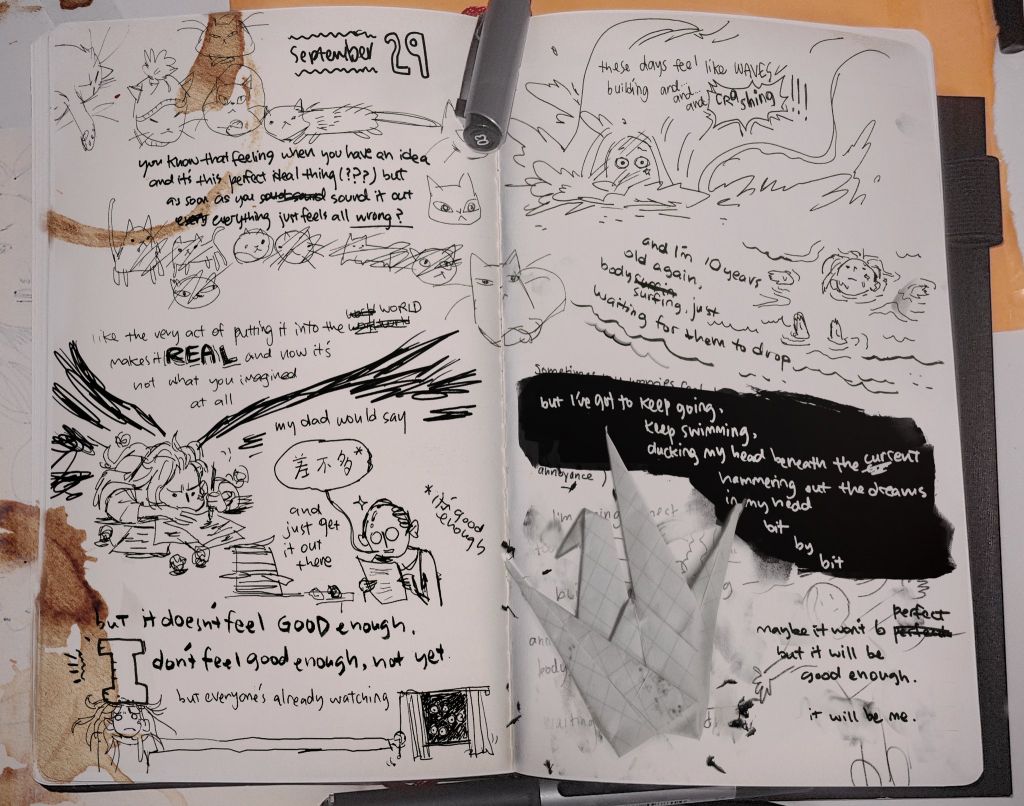 September 29
you know that feeling when you have an idea
and it's this perfect ideal thing (???) but
as soon as you sound it out
everything just feels all wrong?
like the very act of putting it into the WORLD
makes it REAL and now it's
not what you imagined
at all
my dad would say
差不多*
*it's good
enough
and
just get
it out
there
but it doesn't feel GOOD enough.
I don't feel good enough, not yet.
but everyone's already watching
these days feel like WAVES
building and...
and...
and CRASHING!!!
and I'm 10 years
old again,
body
surfing, just
waiting for them to drop
Sometimes
but I've got to keep going,
keep swimming,
ducking my head beneath the current
hammering out the dreams
in my head
bit
by
bit
annoyance)
I'm
body
waiting
perfect
maybe it won't b
but it will be
good enough.
it will be me.